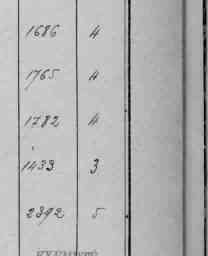 1686 4
1765 4
1782 4
1433 3
2392 5